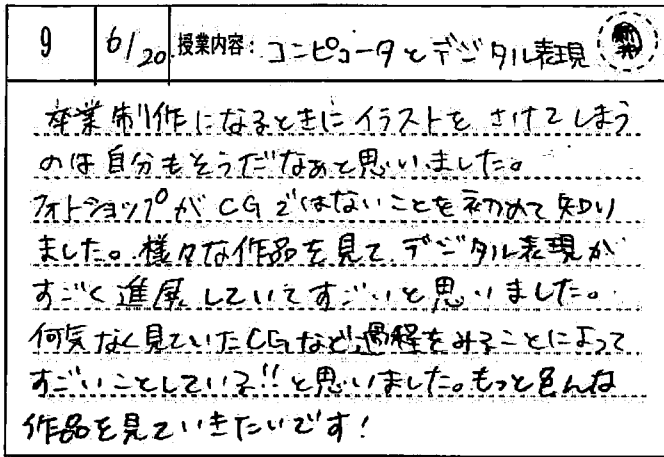 9 6/20 授業内容: コンピュータとデジタル表現
卒業制作になるときにイラストをさけてしまう
のは自分もそうだなぁと思いました。
フォトショップがCGではないことを初めて知り
ました。様々な作品を見てデジタル表現が
すごく進展していてすごいと思いました。
何気なく見ていたCGなど過程をみることによって
すごいことしている!!と思いました。もっと色んな
作品を見ていきたいです!